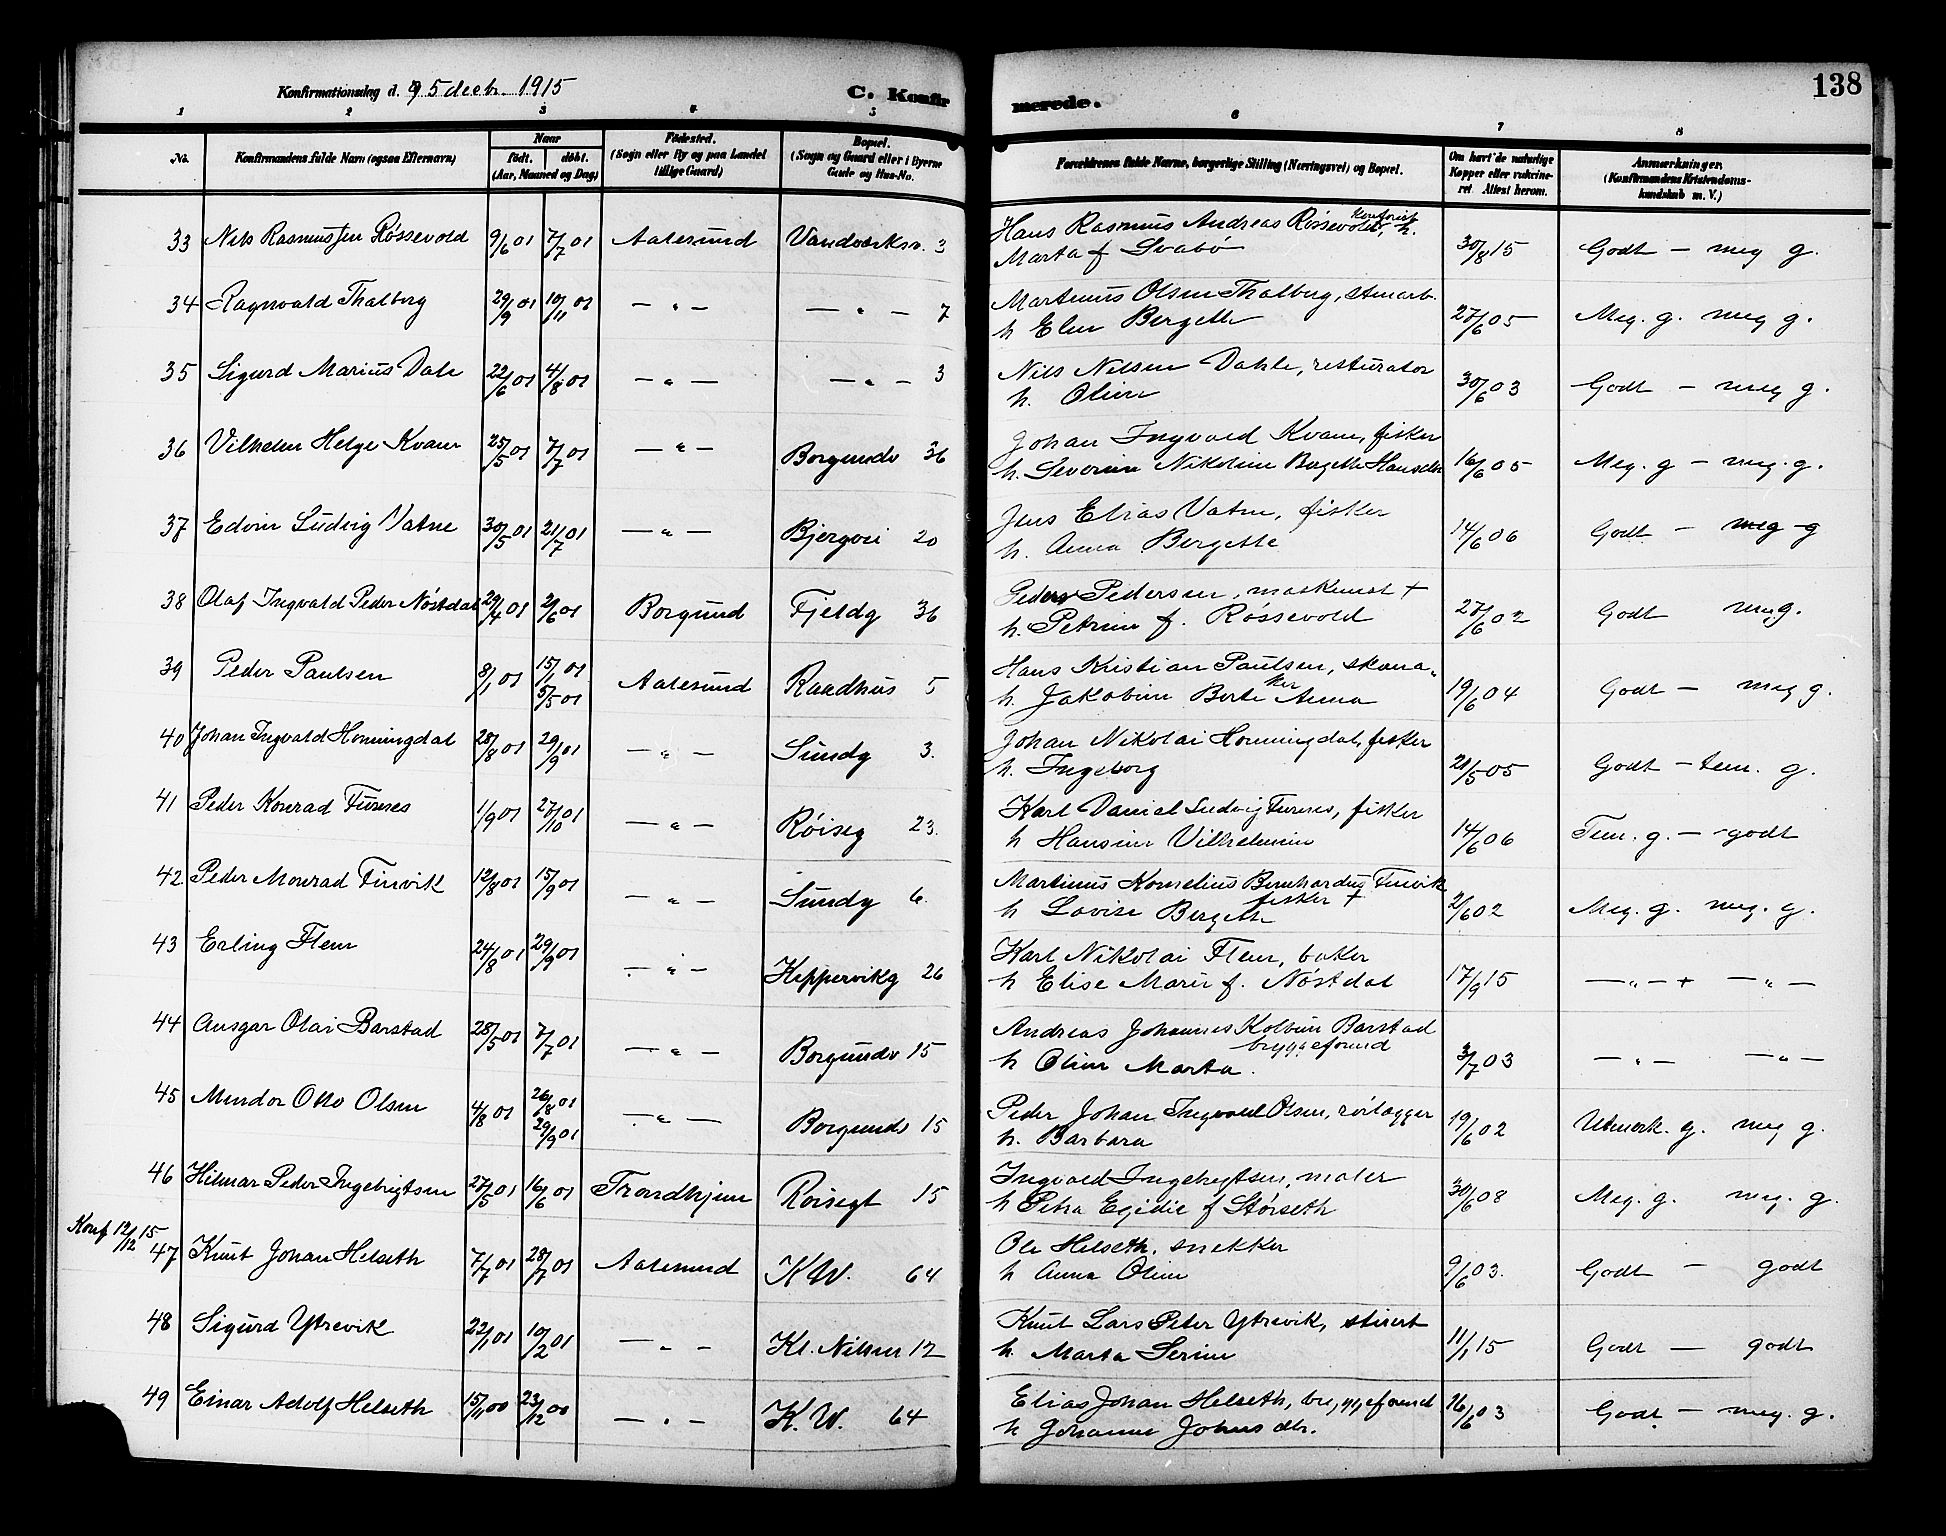 138
Konfirmationsdag d. 5 decbr. 1915
C. Konfirmerede.
1 2 3 4 5 6 7 8
No.
Konfirmandens fulde Navn (ogsaa Efternavn)
Naar
födt. döbt.
(Aar, Maaned og Dag)
Födested.
(Sogn eller By og paa Landet
tillige Gaard)
Bopæl.
(Sogn og Gaard eller i Byerne
Gade og Hus-No.
Forældrenes fulde Navne, borgerlige Stilling (Næringsvei) og Bopæl.
Om havt de naturlige
Kopper eller vakcine-
ret Attest herom.
Anmærkninger.
(Konfirmandens Kristendoms-
kundskab m. V.)
33 Nils Rasmus Jen Røssevold 9/6 01 7/7 01 Aalesund Vandværksv. 3 Hans Rasmus Andreas Røssevold, h.
Marta f Svabø 30/8 15 Godt – meg g.
34 Ragnvald Thalberg 29/9 01 10/11 01 — " — — " — 7 Martinus Olsen Thalberg, stenarb.
h Elen Bergette 27/6 05 Meg. g. meg g.
35 Sigurd Marius Dale 22/6 01 4/8 01 — " — — " — 3 Nils Nilsen Dahle, resturatør
h. Oline 30/6 03 Godt – meg g.
36 Vilhelm Helge Kvam 25/5 01 7/7 01 — " — Borgundv 36 Johan Ingvald Kvam, fisker
h. Severine Nikoline Bergette Hansdtr 16/6 05 Meg. g – meg. g.
37 Edvin Ludvig Vatne 30/5 01 21/7 01 — " — Bjergvei 20 Jens Elias Vatne, fisker
h. Anna Bergette 14/6 06 Godt – meg g
38 Olaf Ingvald Peder Nøstdal 29/4 01 2/6 01 Borgund Fjeldg 36 Peder Pedersen, maskenist +
h. Petrine f. Røssevold 27/6 02 Godt meg.
39 Peder Paulsen 8/1 01 15/1 01
5/5 01 Aalesund Raadhus 5 Hans Kristian Paulsen, skoma-
ker
h. Jakobine Berte Anna 19/6 04 Godt – meg g.
40 Johan Ingvald Honningdal 28/8 01 29/9 01 — " — Sundg 3. Johan Nikolai Honningdal, fisker
h. Ingeborg 21/5 05 Godt – tem. g.
41 Peder Konrad Furnes 1/9 01 27/10 01 — " — Røiseg 23. Karl Daniel Ludvig Furnes, fisker
h Hansine Vilhelmine 14/6 06 Tem. g. – godt
42 Peder Monrad Finvik 12/8 01 15/9 01 — " — Sundg 6. Martinus Kornelius Bernhardus Finvik
fisker +
h Lovise Bergette 2/6 02 Meg. g. meg. g.
43 Erling Flem 24/8 01 29/9 01 — " — Kippervikg 26 Karl Nikolai Flem, baker
h Elise Marie f. Nøstdal 17/9 15 — " — — " —
44 Ansgar Olai Barstad 28/5 01 7/7 01 — " — Borgundv 15 Andreas Johannes Kolbein Barstad
bryggeformd
h Oline Marta. 3/7 03 — " — — " —
45 Mindor Otto Olsen 4/8 01 26/8 01
29/9 01 — " — Borgundv 15 Peder Johan Ingvald Olsen, rørlægger
h. Barbara 19/6 02 Utmerk. g. meg g.
46 Hilmar Peder Ingebrigtsen 27/5 01 16/6 01 Trondhjem Røisegt 15 Ingvald Ingebrigtsen, maler
h Petra Egidie f Størseth 30/6 08 Meg. g. meg. g.
Konf 12/12 15
47 Knut Johan Helseth 7/7 01 28/7 01 Aalesund K W. 64 Ole Helseth, snekker
h Anna Oline 9/6 03. Godt – godt
48 Sigurd Ytrevik 22/1 01 10/2 01 — " — Kl. Nilsen 12 Knut Lars Peter Ytrevik, stuert
h. Marta Serine 11/1 15 Godt — godt
49 Einar Adolf Helseth 15/11 00 23/12 00 — " — K. W. 64 Elias Johan Helseth, bryggeformd
h Johanne Johns dtr. 16/6 03 Godt – meg. g.